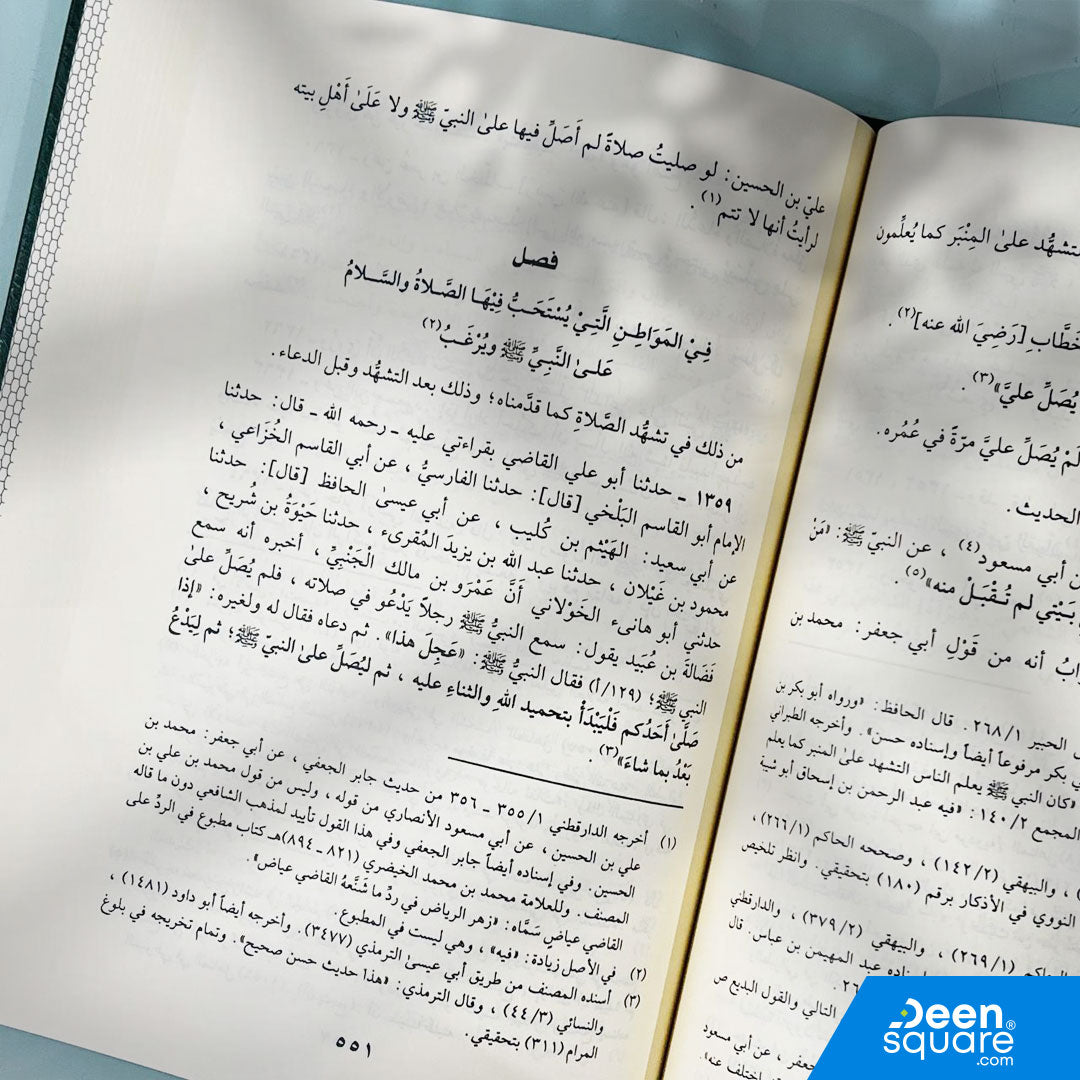 عليّ بن الحسين: لو صليتُ صلاةً لم أَصَلِّ فيها علىٰ النبيّ ﷺ ولا عَلَىٰ أَهْلِ بيته
لرأيتُ أنها لا تتم(١).
فصل
فِيْ المَوَاطِـنِ الَّتِيْ يُسْتَحَـبُّ فِيْهَـا الصَّـلاةُ والسَّـلامُ
عَلـىٰ النَّبِيِّ ﷺ ويُرْغَـبُ(٢)
من ذلك في تشهُّد الصَّلاةِ كما قدَّمناه؛ وذلك بعد التشهُّد وقبل الدعاء.
١٣٥٩ ـ حدثنا أبو علي القاضي بقراءتي عليه ـ رحمه الله ـ قال: حدثنا
الإمام أبو القاسم البَلْخي [قال]: حدثنا الفارسيُّ، عن أبي القاسم الخُزَاعي،
عن أبي سعيد: الهَيْثم بن كُليب، عن أبي عيسىٰ الحافظ [قال]: حدثنا
محمود بن غَيْلان، حدثنا عبد الله بن يزيدَ المُقرىء، حدثنا حَيْوَةُ بن شُريح،
حدثني أبو هانىء الخَوْلاني أَنَّ عَمْرَو بن مالك الْجَنْبِيَّ، أخبره أنه سمع
فَضَالَةَ بن عُبَيد يقول: سمع النبيُّ ﷺ رجلاً يَدْعُو في صلاته، فلم يُصَلِّ علىٰ
النبي ﷺ؛ (١٢٩/أ) فقال النبيُّ ﷺ: «عَجِلَ هذا». ثم دعاه فقال له ولغيره: «إذا
صَلَّىٰ أَحَدُكم فَلْيَبْدَأْ بتحميد اللهِ والثناءِ عليه، ثم ليُصَلِّ علىٰ النبيّ ﷺ؛ ثم لِيَدْعُ
بَعْدُ بما شاءَ»(٣).
(١) أخرجه الدارقطني ٣٥٥/١ ـ ٣٥٦ من حديث جابر الجعفي، عن أبي جعفر: محمد بن
علي بن الحسين، عن أبي مسعود الأنصاري من قوله، وليس من قول محمد بن علي بن
الحسين. وفي إسناده أيضاً جابر الجعفي وفي هذا القول تأييد لمذهب الشافعي دون ما قاله
المصنف. وللعلامة محمد بن محمد الخيضري (٨٢١ ـ ٨٩٤)هـ كتاب مطبوع في الردِّ على
القاضي عياض سَمَّاه: «زهر الرياض في ردِّ ما شَنَّعهُ القاضي عياض».
(٢) في الأصل زيادة: «فيه»، وهي ليست في المطبوع.
(٣) أسنده المصنف من طريق أبي عيسىٰ الترمذي (٣٤٧٧). وأخرجه أيضاً أبو داود (١٤٨١)،
والنسائي (٤٤/٣)، وقال الترمذي: «هذا حديث حسن صحيح». وتمام تخريجه في بلوغ
المرام (٣١١) بتحقيقي.
٥٥١
تشهُّد علىٰ المِنْبَر كما يُعلِّمون
[رَضِيَ الله عنه](٢).
يُصَلِّ عليَّ»(٣).
لَمْ يُصَلِّ عليَّ مرّةً في عُمُره.
الحديث.
أبي مسعود(٤)، عن النبيّ ﷺ: «مَنْ
بَيْتي لم تُـقْبَـلْ منه»(٥)
أنه من قَوْلِ أبي جعفر: محمد بن
الحبير ٢٦٨/١. قال الحافظ: «ورواه أبو بكر بن
بكر مرفوعاً أيضاً وإسناده حسن». وأخرجه الطبراني
«كان النبي ﷺ يعلم الناس التشهد علىٰ المنبر كما يعلم
المجمع ١٤٠/٢: «فيه عبد الرحمن بن إسحاق أبو شيبة
والبيهقي (١٤٢/٢)، وصححه الحاكم (٢٦٦/١)،
النووي في الأذكار برقم (١٨٠) بتحقيقي. وانظر تلخيص
(٢٦٩/١)، والبيهقي (٣٧٩/٢)، والدارقطني
عبد المهيمن بن عباس. قال
التالي والقول البديع ص
جعفر، عن أبي مسعود
اختلف عنه».
Deen
square®
.com